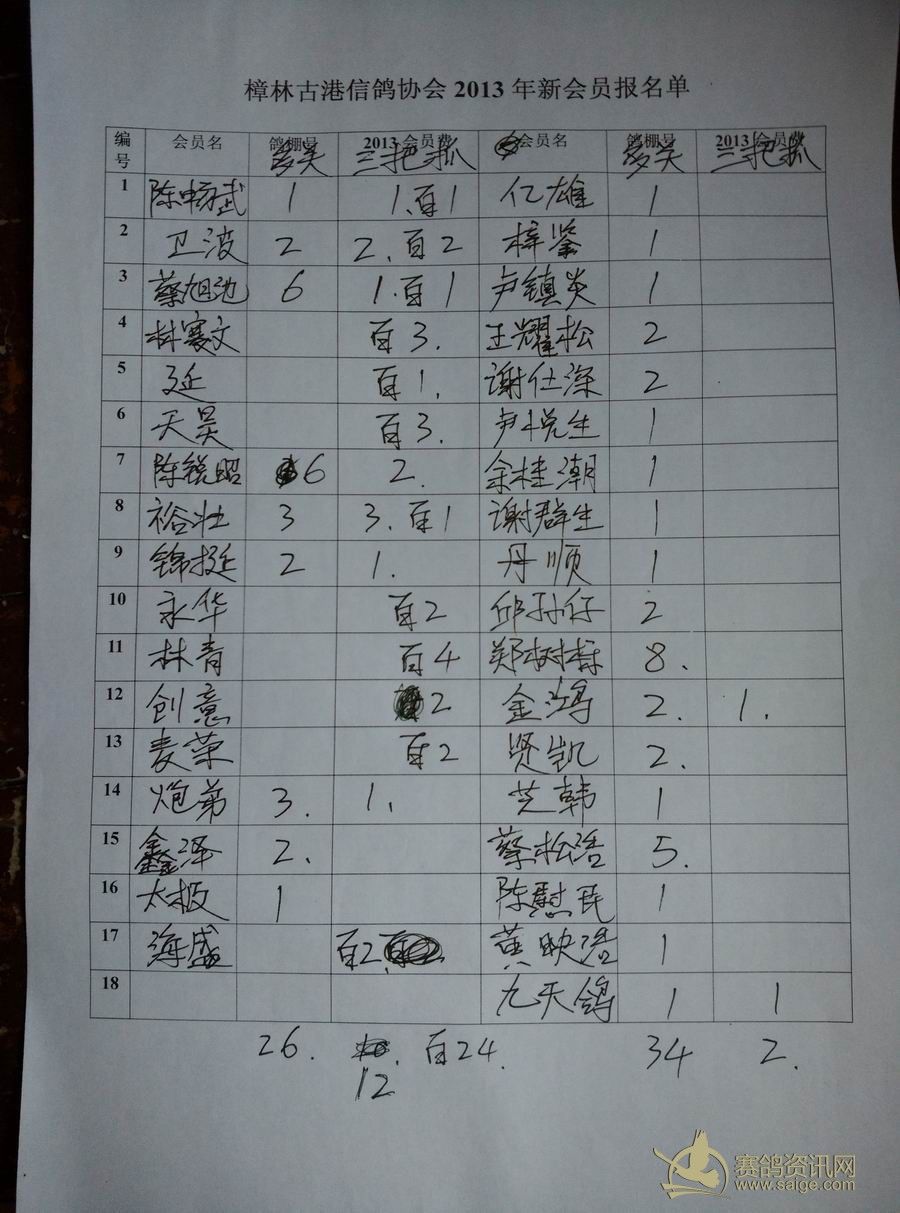 樟林古港信鸽协会 2013 年新会员报名单
编号 会员名 鸽棚号 2013 会员费 会员名 鸽棚号 2013 会员费
多关 三把抓 多关 三把抓
1 陈畅武 1 1.百1 亿雄 1
2 卫波 2 2.百2 梓鉴 1
3 蔡旭池 6 1.百1 卢镇炎 1
4 林赛文 百3. 王耀松 2
5 延 百1. 谢仕深 2
6 天昊 百3. 尹悦生 1
7 陈锐昭 6 2. 余桂潮 1
8 裕壮 3 3.百1 谢群生 1
9 锦挺 2 1. 丹顺 1
10 永华 百2 邱孙 2
11 林青 百4 郑树 8.
12 创意 2 金鸿 2. 1.
13 麦荣 百2 贤凯 2.
14 炮弟 3. 1. 芝韩 1
15 鑫泽 2. 蔡松浩 5.
16 太极 1 陈慰民 1
17 海盛 百2 黄映浩 1
18 九天鸽 1 1
26. 百24. 34 2.
12
赛鸽资讯网
www.saige.com